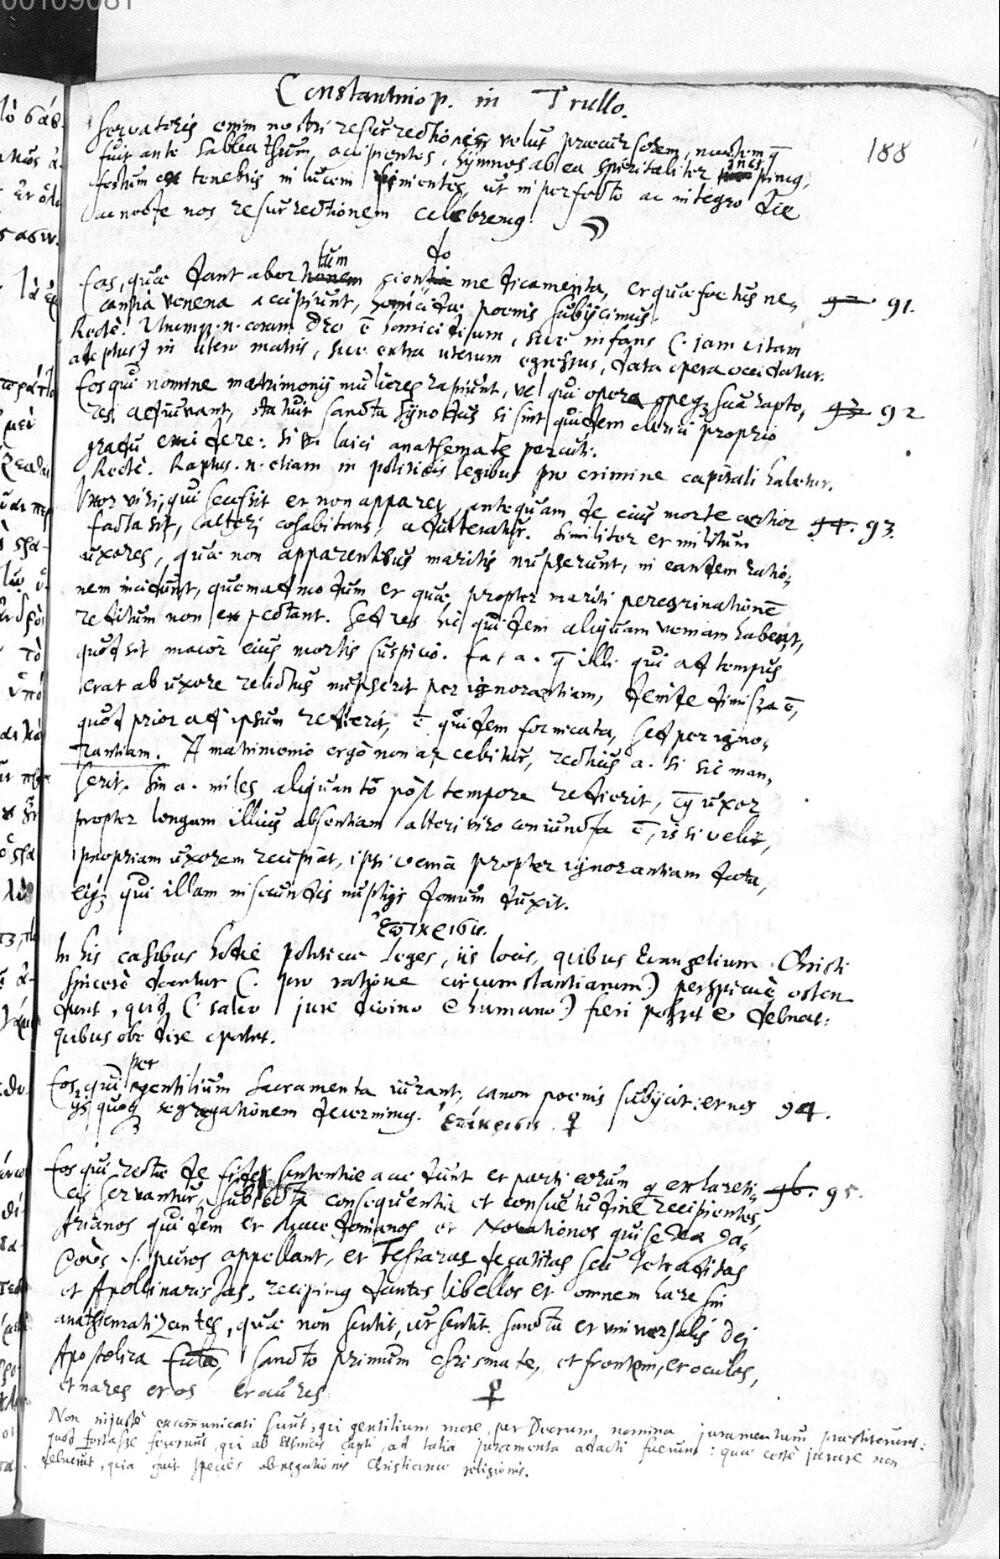 00109081
Constantinop. in Trullo.
188
Servatoris enim nostri resurrectionis velut præcursorem, noctem q̃
fuit ante Sabbathum, accipientes, hymnos ab ea spiritaliter incipimꝰ,
festum ex tenebris in lucem finientes, ut in perfecto ac integro die
ac nocte nos resurrectionem celebremꝰ.
Eas, quæ dant abortum facientia medicamenta, et quæ foetus ne- 91.
cantia venena accipiunt, homicidæ poenis subijcimus.
Rectè. Utrumq;. n. coram Deo ē homicidium, sive infans (. jam vitam
adeptus) in utero matris, sive extra uterum egressus, data opera occidatur.
Eos qui nomine matrimonij mulieres rapiunt, vel qui opera opeq; sua rapto- 92
res adjuvant, statuit sancta synodus si sint quidem clerici proprio
gradu excidere: si v. laici anathemate percuti.
Rectè. Raptus. n. etiam in politicis legibus pro crimine capitali habetur.
Uxor viri, qui secessit et non apparet, antequam de eius morte certior 93.
facta sit, alteri cohabitans, adulteratur. Similiter et militum
uxores, quæ non apparentibus maritis nupserunt, in eandem ratio-
nem incidunt, quemadmodum et quæ, propter mariti peregrinationē
reditum non expectant. Sed res hic quidem aliquam veniam habent,
quod sit maior eius mortis suspicio. Ea, a. q̃ illi qui ad tempus
erat ab uxore relictus nupserit per ignorantiam, deinde dimissa ē,
quod prior ad ipsum redierit, ē quidem fornicata, sed per igno-
rantiam. A matrimonio ergò non arcebitur, rectius a. si sic man-
serit. Sin a. miles aliquantò pòst tempore redierit, cuj uxor
propter longam illius absentiam alteri viro coniuncta ē, is si velit,
propriam uxorem recipiat, ipsi veniâ propter ignorantiam data,
eiq; qui illam in secundis nuptijs domum duxit.
Ἐπίκρισις.
In his casibus hodiè politicæ Leges, iis locis, quibus Evangelium Christi
sincerè docetur (. pro ratione circumstantiarum.) perspicuè osten
dunt, quid (. salvo jure divino & humano.) fieri possit & debeat:
quibus obedire oportet.
Eos, qui per gentilium sacramenta iurant, canon poenis subijcit: et nos 94.
ijs quoq; segregationem decernimꝰ. Ἐπίκρισις. ♀
Eos qui rectæ de fide sententiæ accedunt et parti eorum q̃ ex hæreti- 95.
cis servantur, subjecta consequentia et consuetudine recipientes,
Arianos quidem et Macedonianos et Novatianos qui se Κα θα-
ροὺς .i. puros appellant, et Tessarascædecatitas seu tetraditas
et Apollinaristas, recipimꝰ dantes libellos et omnem hæresin
anathematizantes, quæ non sentit, ut sentit sancta et universalis Dei
Apostolica Ecclesia, sancto primùm chrismate, et frontem, et oculos,
et nares et os et aures ♀
Non injustè excommunicati sunt, qui gentilium more per Deorum nomina juramentum præstiterunt:
quod fortasse fecerunt, qui ab Ethnicis capti, ad talia juramenta adacti fuerunt: quæ certè jurare non
debuerunt, quia fuit species abnegationis Christianæ religionis.